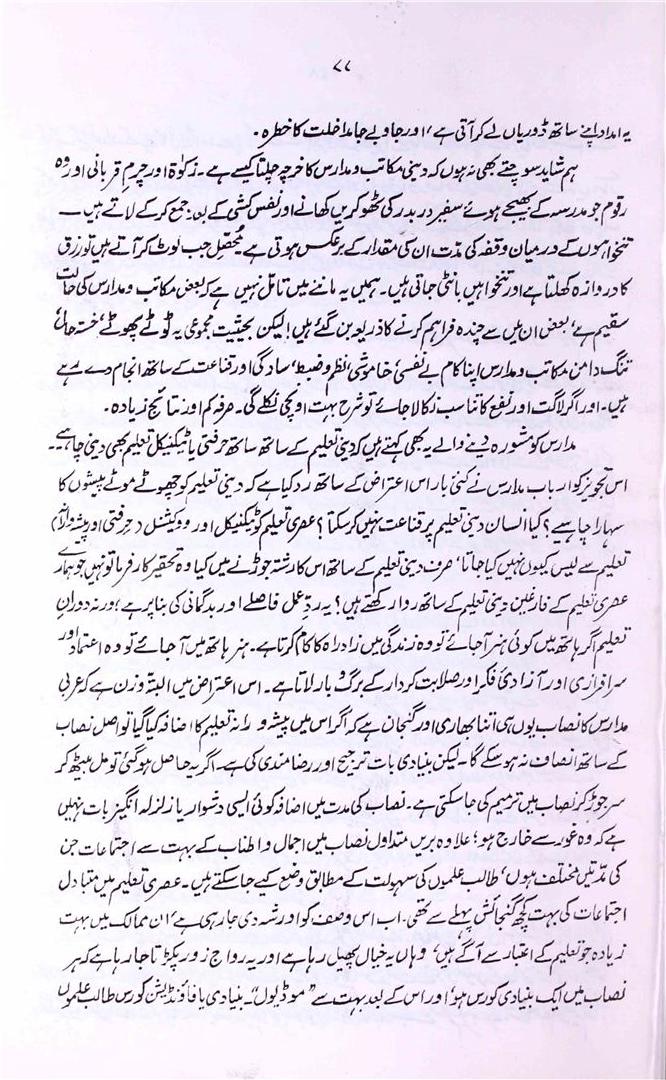 ۷۷
یہ امداد اپنے ساتھ ڈوریاں لے کر آتی ہے، اور جا و بے جا مداخلت کا خطرہ۔
ہم شاید سوچتے بھی نہ ہوں کہ دینی مکاتب و مدارس کا خرچہ چلتا کیسے ہے۔ زکوٰۃ اور چرم قربانی اور وہ
رقوم جو مدرسہ کے بھیجے ہوئے سفیر در بدر کی ٹھوکریں کھانے اور نفس کشی کے بعد جمع کر کے لاتے ہیں۔
تنخواہوں کے درمیان وقفہ کی مدّت ان کی مقدار کے برعکس ہوتی ہے۔ محصّل جب لوٹ کر آتے ہیں تو رزق
کا دروازہ کھلتا ہے اور تنخواہیں بانٹی جاتی ہیں۔ ہمیں یہ ماننے میں تامل نہیں ہے کہ بعض مکاتب و مدارس کی حالت
سقیم ہے، بعض ان میں سے چندہ فراہم کرنے کا ذریعہ بن گئے ہیں! لیکن بحیثیت مجموعی یہ ٹوٹے پھوٹے، خستہ حال،
تنگ دامن مکاتب و مدارس اپنا کام بے نفسی، خاموشی، نظم و ضبط، سادگی اور قناعت کے ساتھ انجام دے رہے
ہیں۔ اور اگر لاگت اور نفع کا تناسب نکالا جائے تو شرح بہت اونچی نکلے گی۔ صرفہ کم اور نتائج زیادہ۔
مدارس کو مشورہ دینے والے یہ بھی کہتے ہیں کہ دینی تعلیم کے ساتھ ساتھ حرفتی یا ٹیکنیکل تعلیم بھی دینی چاہیے۔
اس تجویز کو ارباب مدارس نے کئی بار اس اعتراض کے ساتھ رد کیا ہے کہ دینی تعلیم کو چھوٹے موٹے پیشوں کا
سہارا چاہیے؟ کیا انسان دینی تعلیم پر قناعت نہیں کر سکتا؟ عصری تعلیم کو ٹیکنیکل اور ووکیشنل (حرفتی اور پیشہ ورانہ)
تعلیم سے لیس کیوں نہیں کیا جاتا، صرف دینی تعلیم کے ساتھ اس کا رشتہ جوڑنے میں کیا وہ تحقیر کار فرما تو نہیں جو ہمارے
عصری تعلیم کے فارغین دینی تعلیم کے ساتھ روا رکھتے ہیں؟ یہ ردِّ عمل فاصلے اور بدگمانی کی بنا پر ہے؛ ورنہ دورانِ
تعلیم اگر ہاتھ میں کوئی ہنر آ جائے تو وہ زندگی میں زاد راہ کا کام کرتا ہے۔ ہنر ہاتھ میں آ جائے تو وہ اعتماد اور
سرافرازی اور آزادیٔ فکر اور صلابت کردار کے برگ و بار لاتا ہے۔ اس اعتراض میں البتہ وزن ہے کہ عربی
مدارس کا نصاب یوں ہی اتنا بھاری اور گنجان ہے کہ اگر اس میں پیشہ ورانہ تعلیم کا اضافہ کیا گیا تو اصل نصاب
کے ساتھ انصاف نہ ہو سکے گا۔ لیکن بنیادی بات ترجیح اور رضامندی کی ہے۔ اگر یہ حاصل ہو گئی تو مل بیٹھ کر
سر جوڑ کر نصاب میں ترمیم کی جا سکتی ہے۔ نصاب کی مدت میں اضافہ کوئی ایسی دشوار یا زلزلہ انگیز بات نہیں
ہے کہ وہ غور سے خارج ہو؛ علاوہ بریں متداول نصاب میں اجمال و اطناب کے بہت سے اجتماعات جن
کی مدّتیں مختلف ہوں، طالب علموں کی سہولت کے مطابق وضع کیے جا سکتے ہیں۔ عصری تعلیم میں متبادل
اجتماعات کی بہت کچھ گنجائش پہلے سے تھی۔ اب اس وصف کو اور شہ دی جا رہی ہے، ان ممالک میں بہت
زیادہ جو تعلیم کے اعتبار سے آگے ہیں، وہاں یہ خیال پھیل رہا ہے اور یہ رواج زور پکڑتا جا رہا ہے کہ ہر
نصاب میں ایک بنیادی کورس ہو، اور اس کے بعد بہت سے "موڈیول"۔ بنیادی یا فاؤنڈیشن کورس طالب علموں